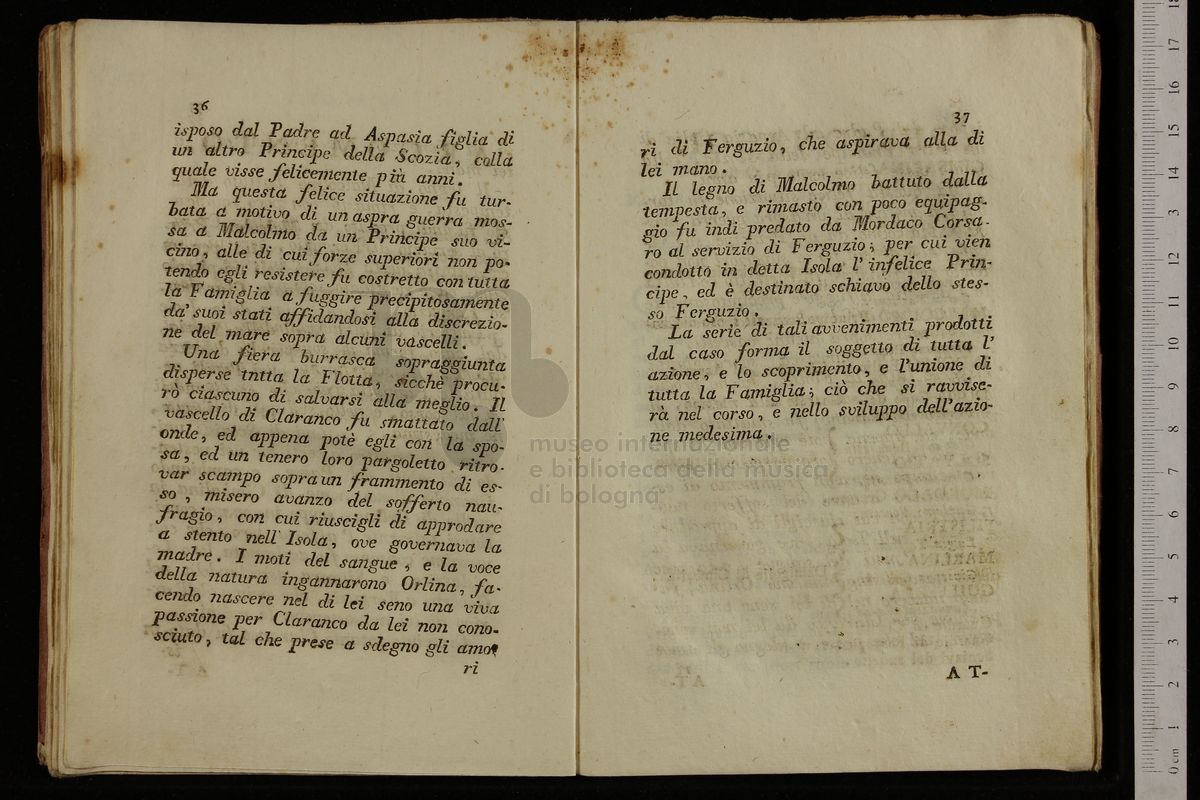 36
isposo dal Padre ad Aspasia figlia di
un altro Principe della Scozia, colla
quale visse felicemente più anni.
Ma questa felice situazione fu tur-
bata a motivo di un aspra guerra mos-
sa a Malcolmo da un Principe suo vi-
cino, alle di cui forze superiori non po-
tendo egli resistere fu costretto con tutta
la Famiglia a fuggire precipitosamente
da' suoi stati affidandosi alla discrezio-
ne del mare sopra alcuni vascelli.
Una fiera burrasca sopraggiunta
disperse tntta la Flotta, sicchè procu-
rò ciascuno di salvarsi alla meglio. Il
vascello di Claranco fu smattato dall'
onde, ed appena potè egli con la spo-
sa, ed un tenero loro pargoletto ritro-
var scampo sopra un frammento di es-
so, misero avanzo del sofferto nau-
fragio, con cui riuscigli di approdare
a stento nell' Isola, ove governava la
madre. I moti del sangue, e la voce
della natura ingannarono Orlina, fa-
cendo nascere nel di lei seno una viva
passione per Claranco da lei non cono-
sciuto, tal che prese a sdegno gli amo-
ri
37
ri di Ferguzio, che aspirava alla di
lei mano.
Il legno di Malcolmo battuto dalla
tempesta, e rimasto con poco equipag-
gio fu indi predato da Mordaco Corsa-
ro al servizio di Ferguzio; per cui vien
condotto in detta Isola l' infelice Prin-
cipe, ed è destinato schiavo dello stes-
so Ferguzio.
La serie di tali avvenimenti prodotti
dal caso forma il soggetto di tutta l'
azione, e lo scoprimento, e l'unione di
tutta la Famiglia; ciò che si ravvise-
rà nel corso, e nello sviluppo dell'azio-
ne medesima.
A T-
museo internazionale
e biblioteca della musica
di bologna
0 cm 1 2 3 4 5 6 7 8 9 10 11 12 13 14 15 16 17 18